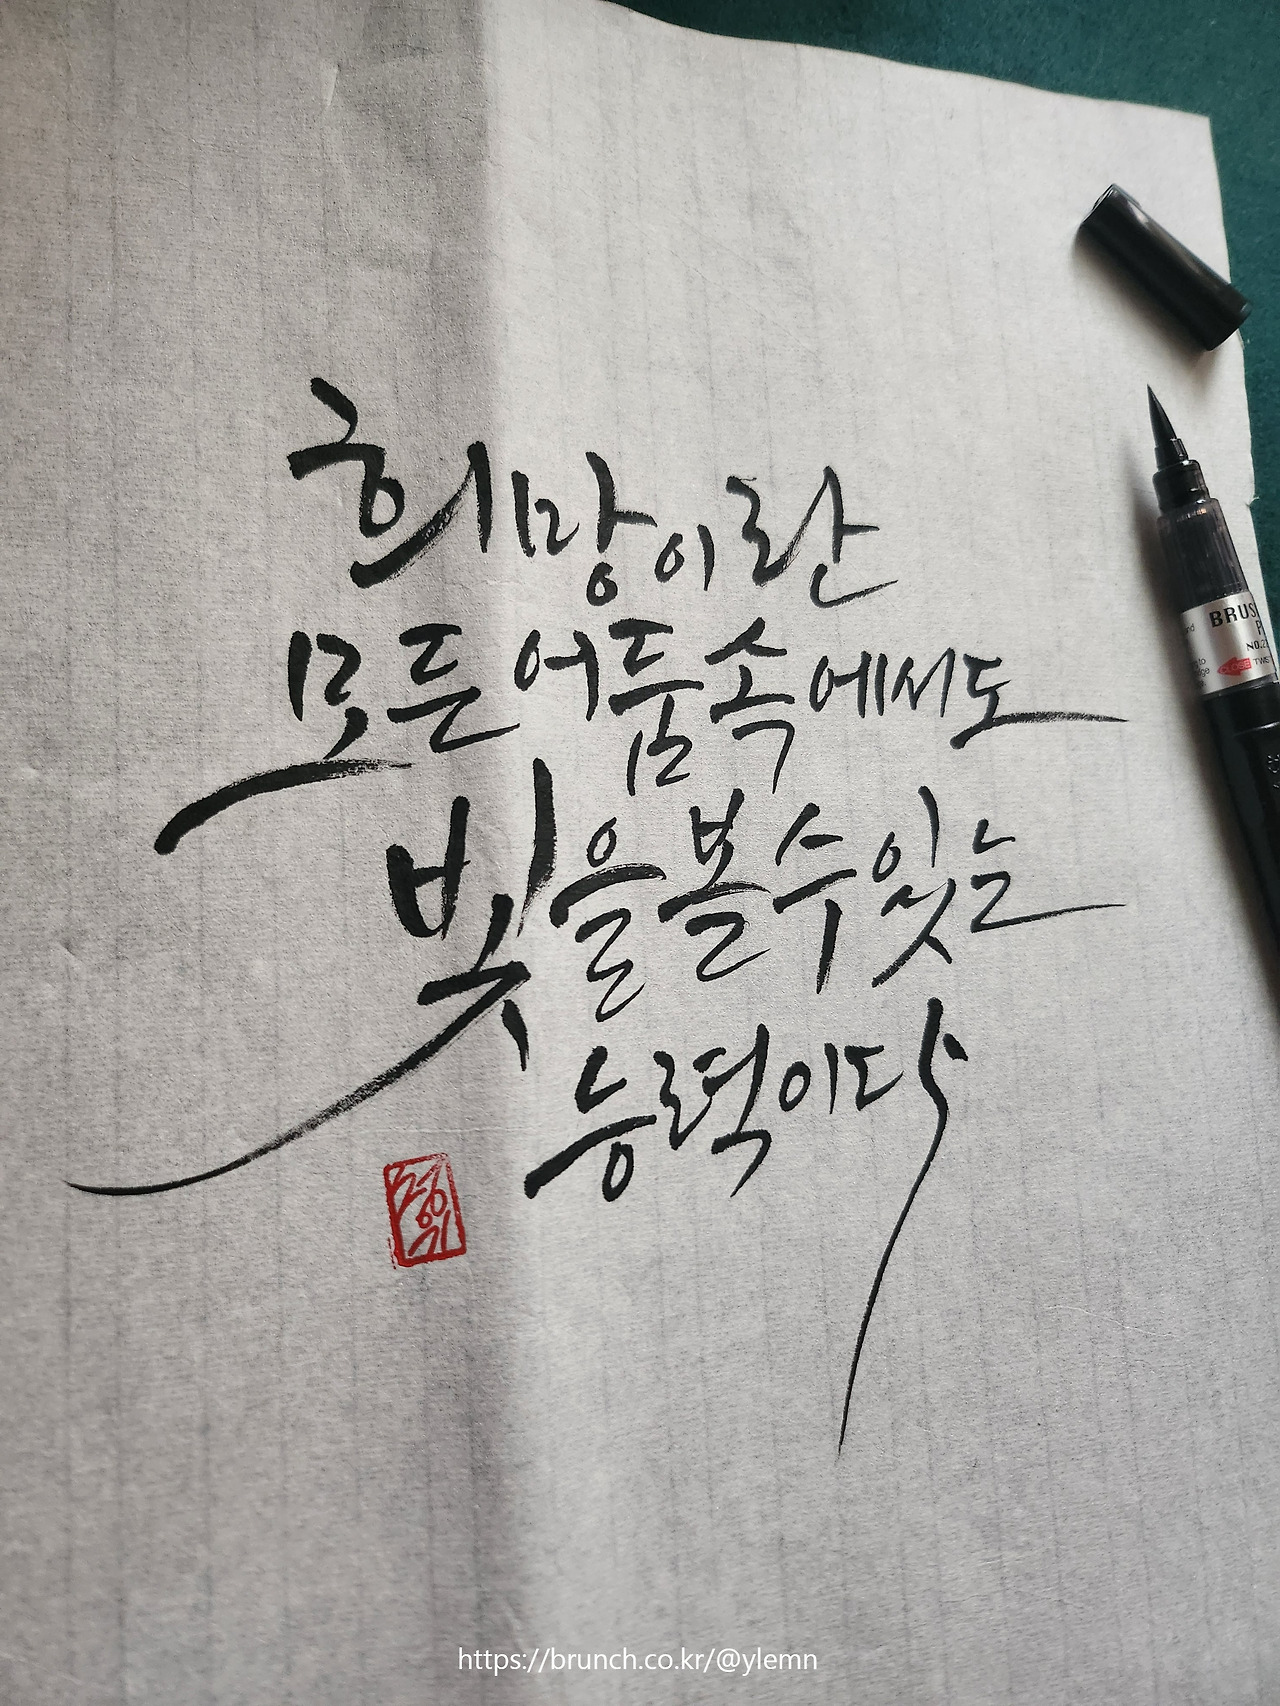 희망이란
모든 어둠 속에서도
빛을 볼 수 있는
능력이다
BRUS
NO.2
CLOSE
TWIS
https://brunch.co.kr/@ylemn